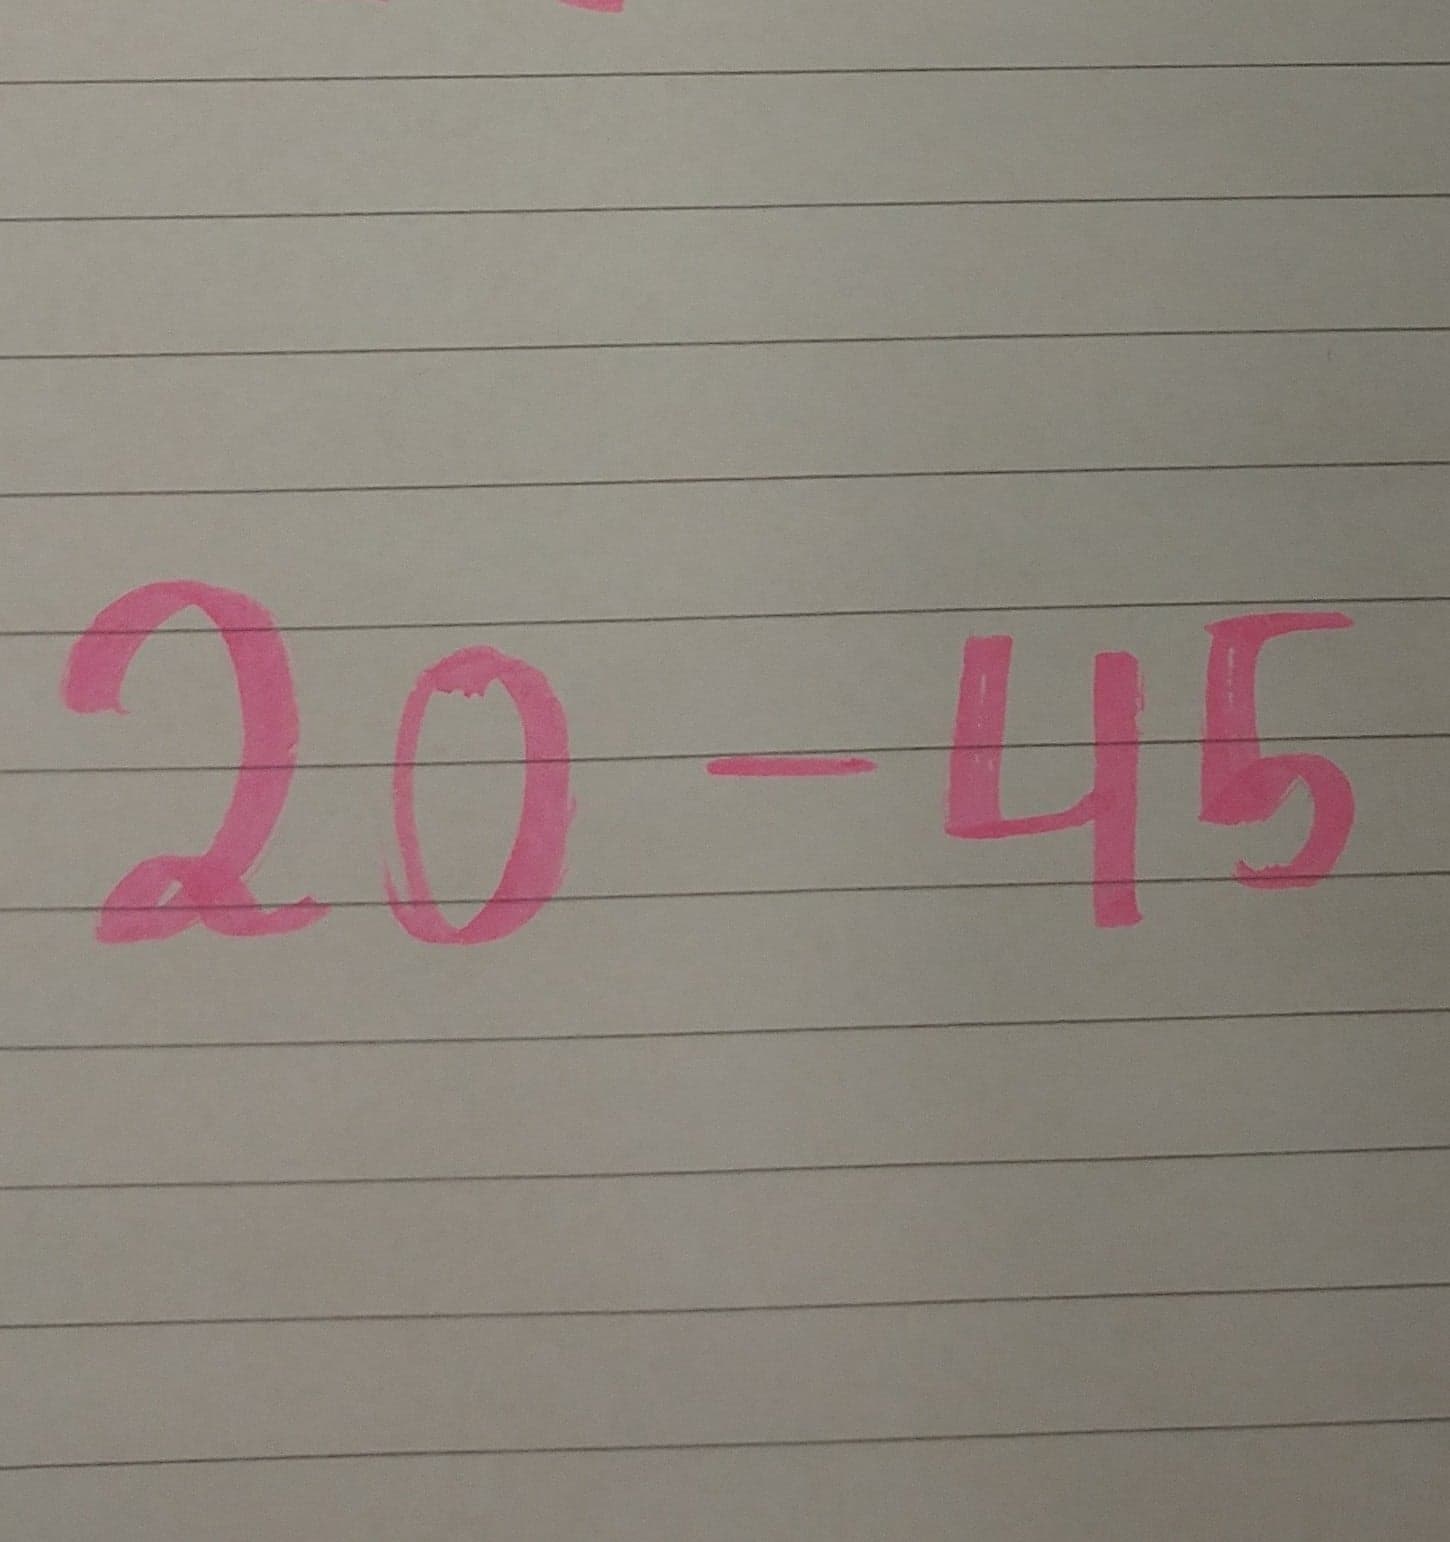 20 - 45